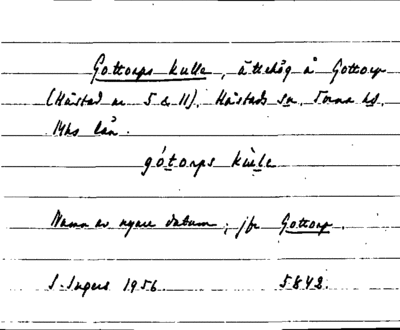 Gottorps kulle, ättehög å Gottorp
(Håstad nr 5 & 11). Håstads sn. Torna hd.
Mhs län.
gótorps kùlle
Namn av nyare datum; jfr Gottorp.
S. Ingers 1956. 5842.